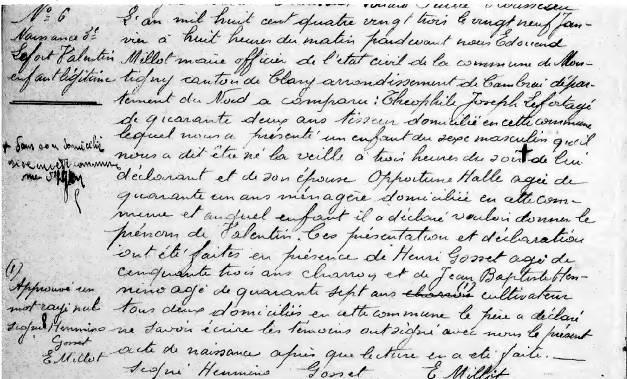 N° 6
Naissance de
Lefort Valentin
enfant légitime
L'an mil huit cent quatre vingt trois le vingt neuf jan-
vier à huit heures du matin pardevant nous Edouard
Millot maire officier de l'état civil de la commune de Mon-
tigny canton de Clary arrondissement de Cambrai dépar-
tement du Nord a comparu : Théophile Joseph Lefort agé
de quarante deux ans tisseur domicilié en cette commune
lequel nous a présenté un enfant du sexe masculin qu'il
nous a dit être né la veille à trois heures du soir + de lui
déclarant et de son épouse Opportune Halle agée de
quarante un ans ménagère domiciliée en cette com-
mune et auquel enfant il a déclaré vouloir donner le
prénom de Valentin. Ces présentation et déclaration
ont été faites en présence de Henri Gosset agé de
cinquante trois ans charron et de Jean Baptiste Hen-
nino agé de quarante sept ans charron (1) cultivateur
tous deux domiciliés en cette commune le père a déclaré
ne savoir écrire les témoins ont signé avec nous le présent
acte de naissance après que lecture en a été faite.
Signé Hennino Gosset E. Millot
+ dans son domicile
commune
(1)
Approuvé un
mot rayé nul
signé Hennino
Gosset
E. Millot